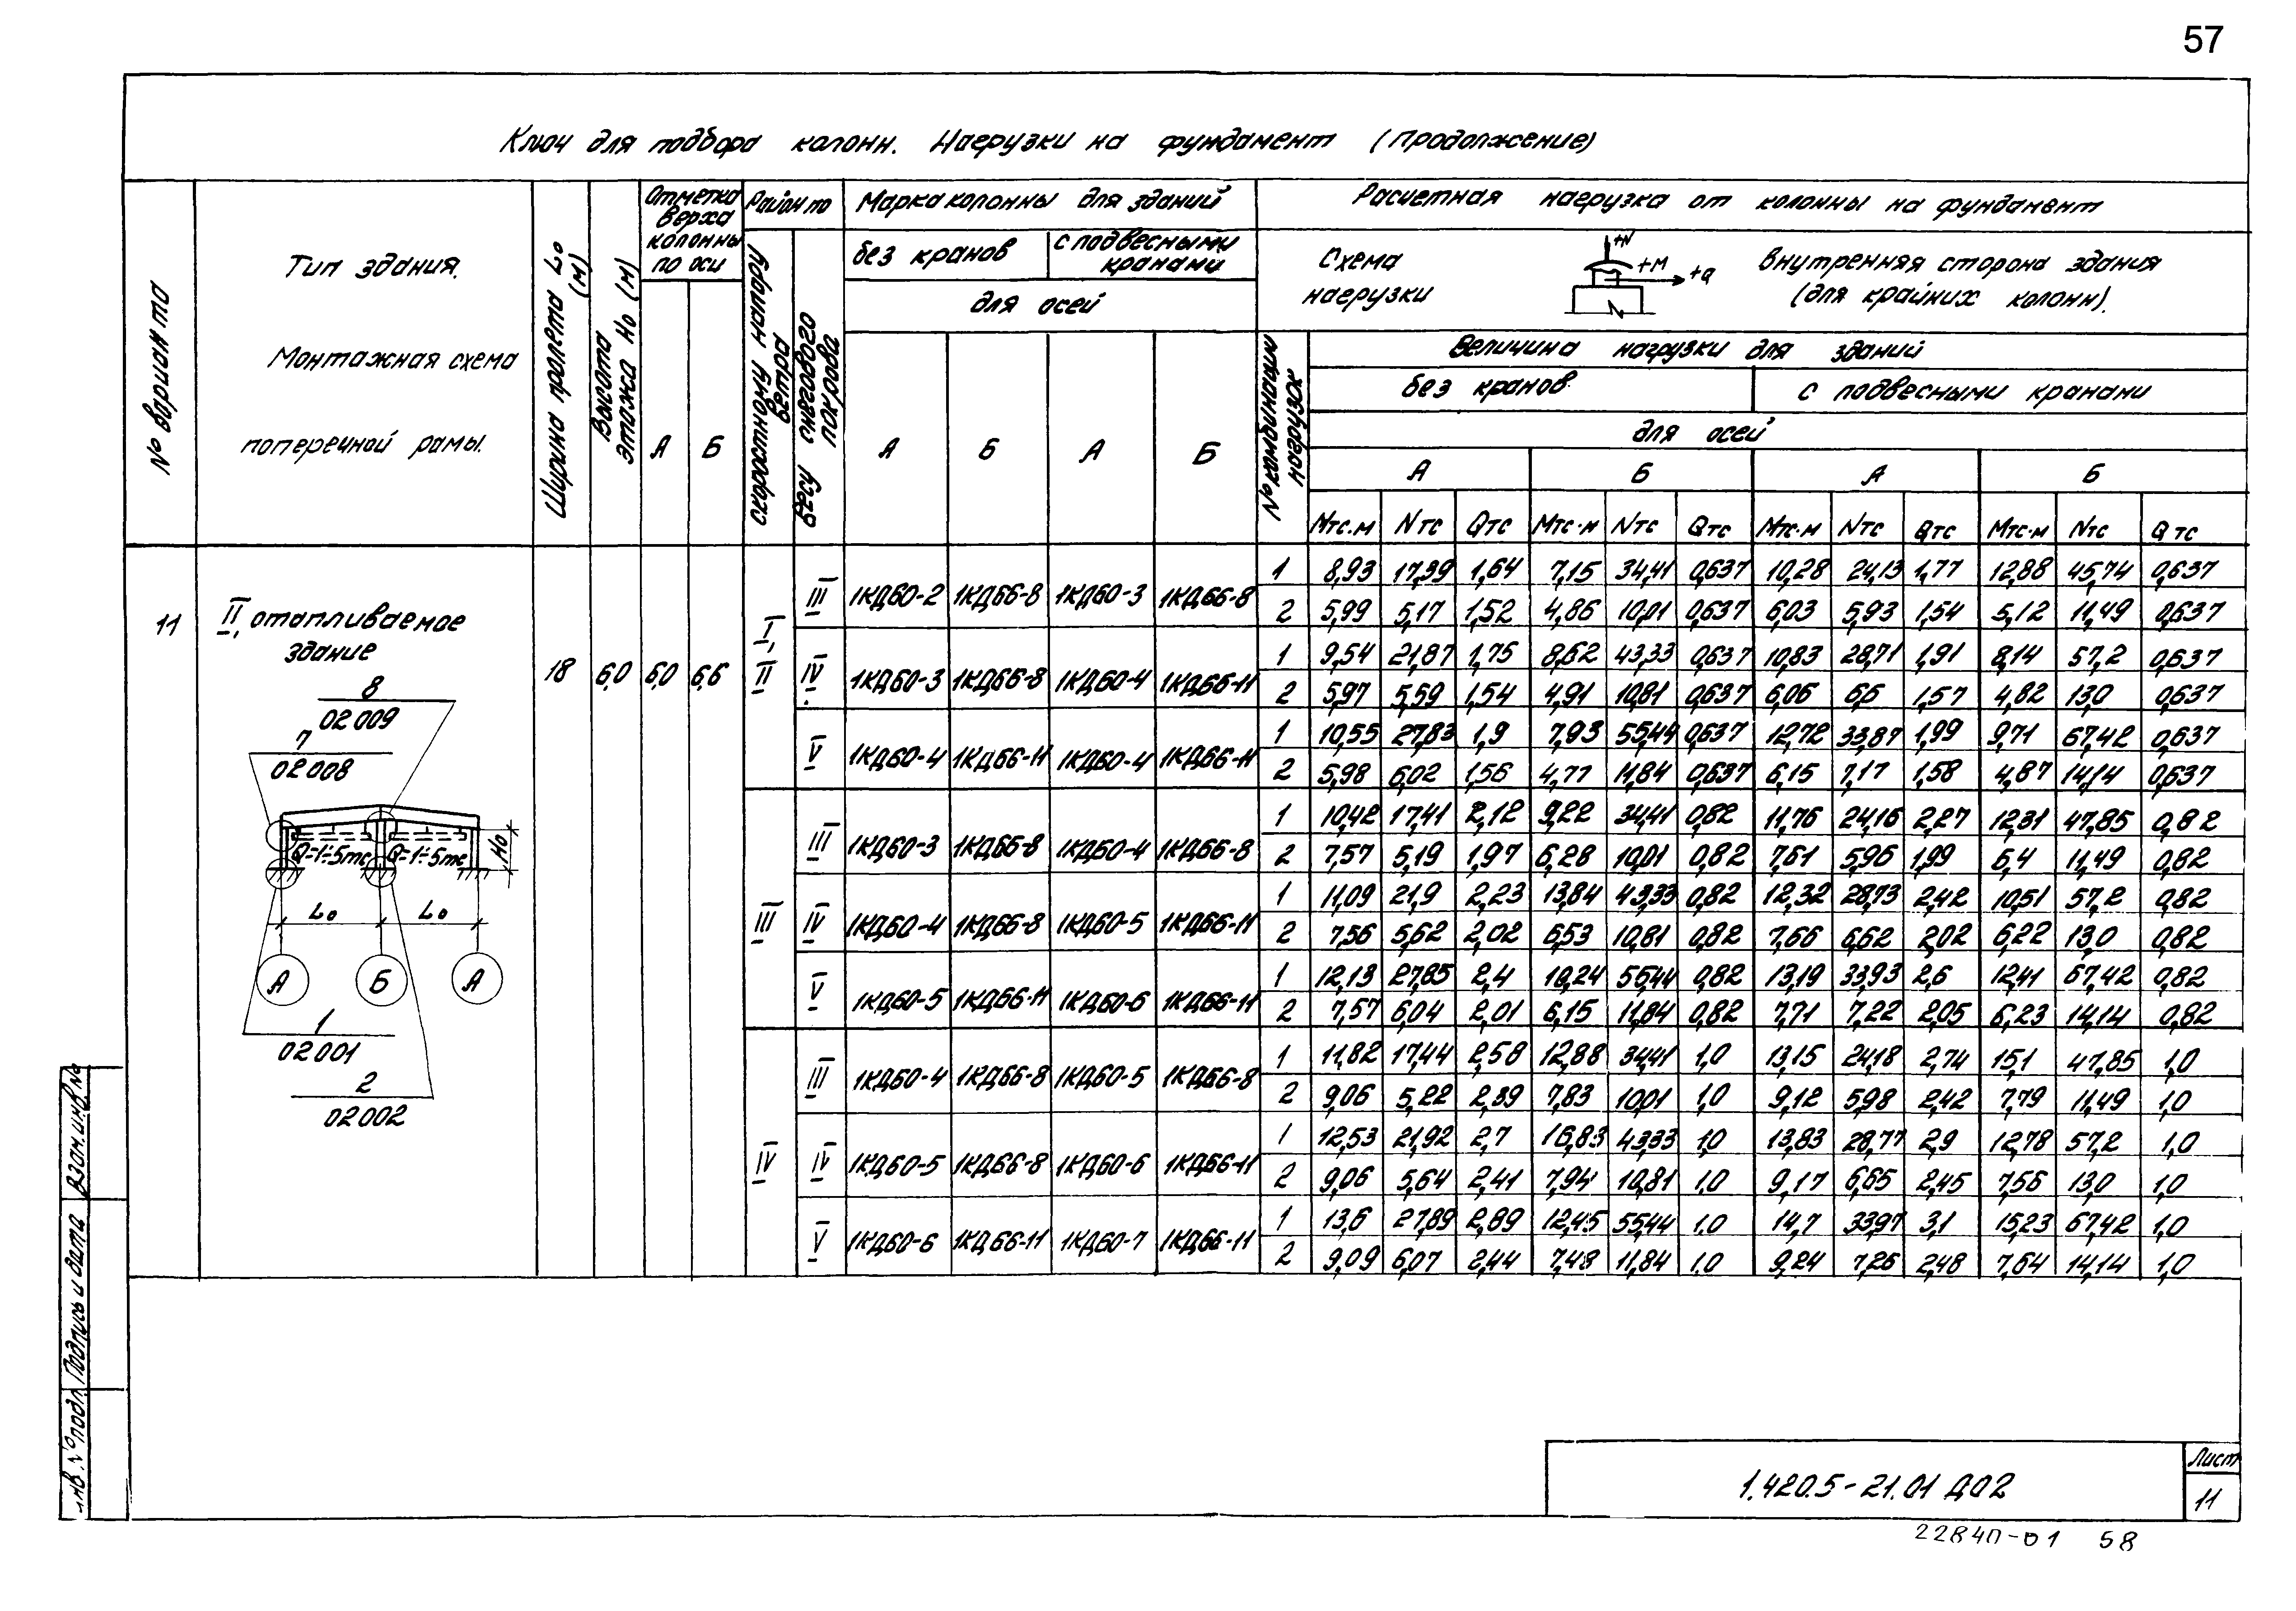 57
Ключ для подбора колонн. Нагрузки на фундамент (Продолжение)
№ варианта
Тип здания.
Монтажная схема
поперечной рамы.
Ширина пролета L₀ (м)
Высота этажа H₀ (м)
Отметка верха колонны по оси
А Б
Район по
скоростному напору ветра
весу снегового покрова
Марка колонны для зданий
без кранов
с подвесными кранами
для осей
А Б А Б
Расчетная нагрузка от колонны на фундамент
Схема нагрузки
+N
+M
+Q
Внутренняя сторона здания
(для крайних колонн).
№ комбинации нагрузок
Величина нагрузки для зданий
без кранов
с подвесными кранами
для осей
А Б А Б
Мтс.м Nтс Qтс Мтс·м Nтс Qтс Мтс·м Nтс Qтс Мтс·м Nтс Qтс
11
II, отапливаемое
здание
8
02009
7
02008
Q=1÷5тс Q=1÷5тс
H₀
L₀ L₀
А Б А
1
02001
2
02002
18 6,0 6,0 6,6
I, II
III 1КД60-2 1КД66-8 1КД60-3 1КД66-8
1 8,93 17,39 1,64 7,15 34,41 0,637 10,28 24,13 1,77 12,88 45,74 0,637
2 5,99 5,17 1,52 4,86 10,01 0,637 6,03 5,93 1,54 5,12 11,49 0,637
IV 1КД60-3 1КД66-8 1КД60-4 1КД66-11
1 9,54 21,87 1,75 8,62 43,33 0,637 10,83 28,71 1,91 8,14 57,2 0,637
2 5,97 5,59 1,54 4,91 10,81 0,637 6,06 6,6 1,57 4,82 13,0 0,637
V 1КД60-4 1КД66-11 1КД60-4 1КД66-11
1 10,55 27,83 1,9 7,93 55,44 0,637 12,72 33,87 1,99 9,71 67,42 0,637
2 5,98 6,02 1,56 4,77 11,84 0,637 6,15 7,17 1,58 4,87 14,14 0,637
III
III 1КД60-3 1КД66-8 1КД60-4 1КД66-8
1 10,42 17,41 2,12 9,22 34,41 0,82 11,76 24,16 2,27 12,31 47,85 0,82
2 7,57 5,19 1,97 6,28 10,01 0,82 7,61 5,96 1,99 6,4 11,49 0,82
IV 1КД60-4 1КД66-8 1КД60-5 1КД66-11
1 11,09 21,9 2,23 13,84 43,33 0,82 12,32 28,73 2,42 10,51 57,2 0,82
2 7,56 5,62 2,02 6,53 10,81 0,82 7,66 6,62 2,02 6,22 13,0 0,82
V 1КД60-5 1КД66-11 1КД60-6 1КД66-11
1 12,13 27,85 2,4 10,24 55,44 0,82 13,19 33,93 2,6 12,41 67,42 0,82
2 7,57 6,04 2,01 6,15 11,84 0,82 7,71 7,22 2,05 6,23 14,14 0,82
IV
III 1КД60-4 1КД66-8 1КД60-5 1КД66-8
1 11,82 17,44 2,58 12,88 34,41 1,0 13,15 24,18 2,74 15,1 47,85 1,0
2 9,06 5,22 2,39 7,83 10,01 1,0 9,12 5,98 2,42 7,79 11,49 1,0
IV 1КД60-5 1КД66-8 1КД60-6 1КД66-11
1 12,53 21,92 2,7 16,83 43,33 1,0 13,83 28,77 2,9 12,78 57,2 1,0
2 9,06 5,64 2,41 7,94 10,81 1,0 9,17 6,65 2,45 7,56 13,0 1,0
V 1КД60-6 1КД66-11 1КД60-7 1КД66-11
1 13,6 27,89 2,89 12,45 55,44 1,0 14,7 33,97 3,1 15,23 67,42 1,0
2 9,09 6,07 2,44 7,48 11,84 1,0 9,24 7,26 2,48 7,64 14,14 1,0
Взам.инв.№
Подпись и дата
Инв.№подл.
1.420.5-21.01 Д02
Лист
11
22840-01 58